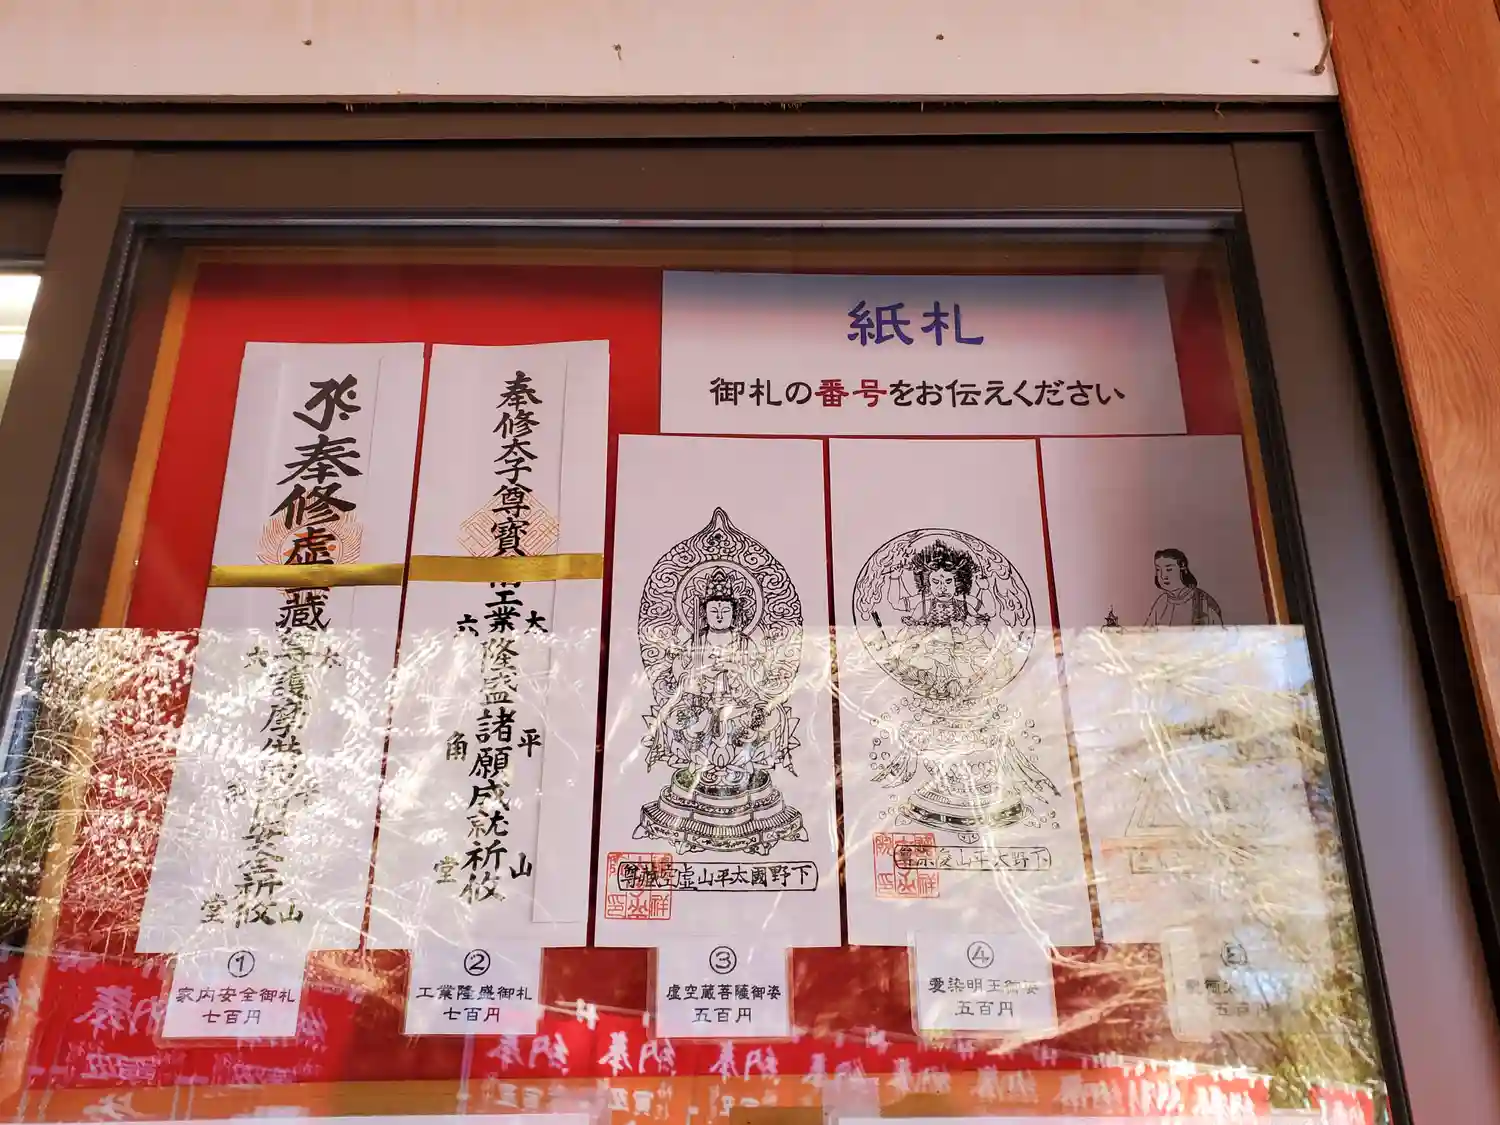 紙札
御札の番号をお伝えください
奉修虚
藏尊護摩供
安全祈攸
大
六
山
堂
奉修太子尊寶
工業隆盛諸願成就祈攸
大
平
山
六
角
堂
下野國太平山虚空藏尊
下野太平山愛染尊
①
家内安全御札
七百円
②
工業隆盛御札
七百円
③
虚空蔵菩薩御姿
五百円
④
愛染明王御姿
五百円
⑤
五百円
奉納
奉納
奉納
奉納